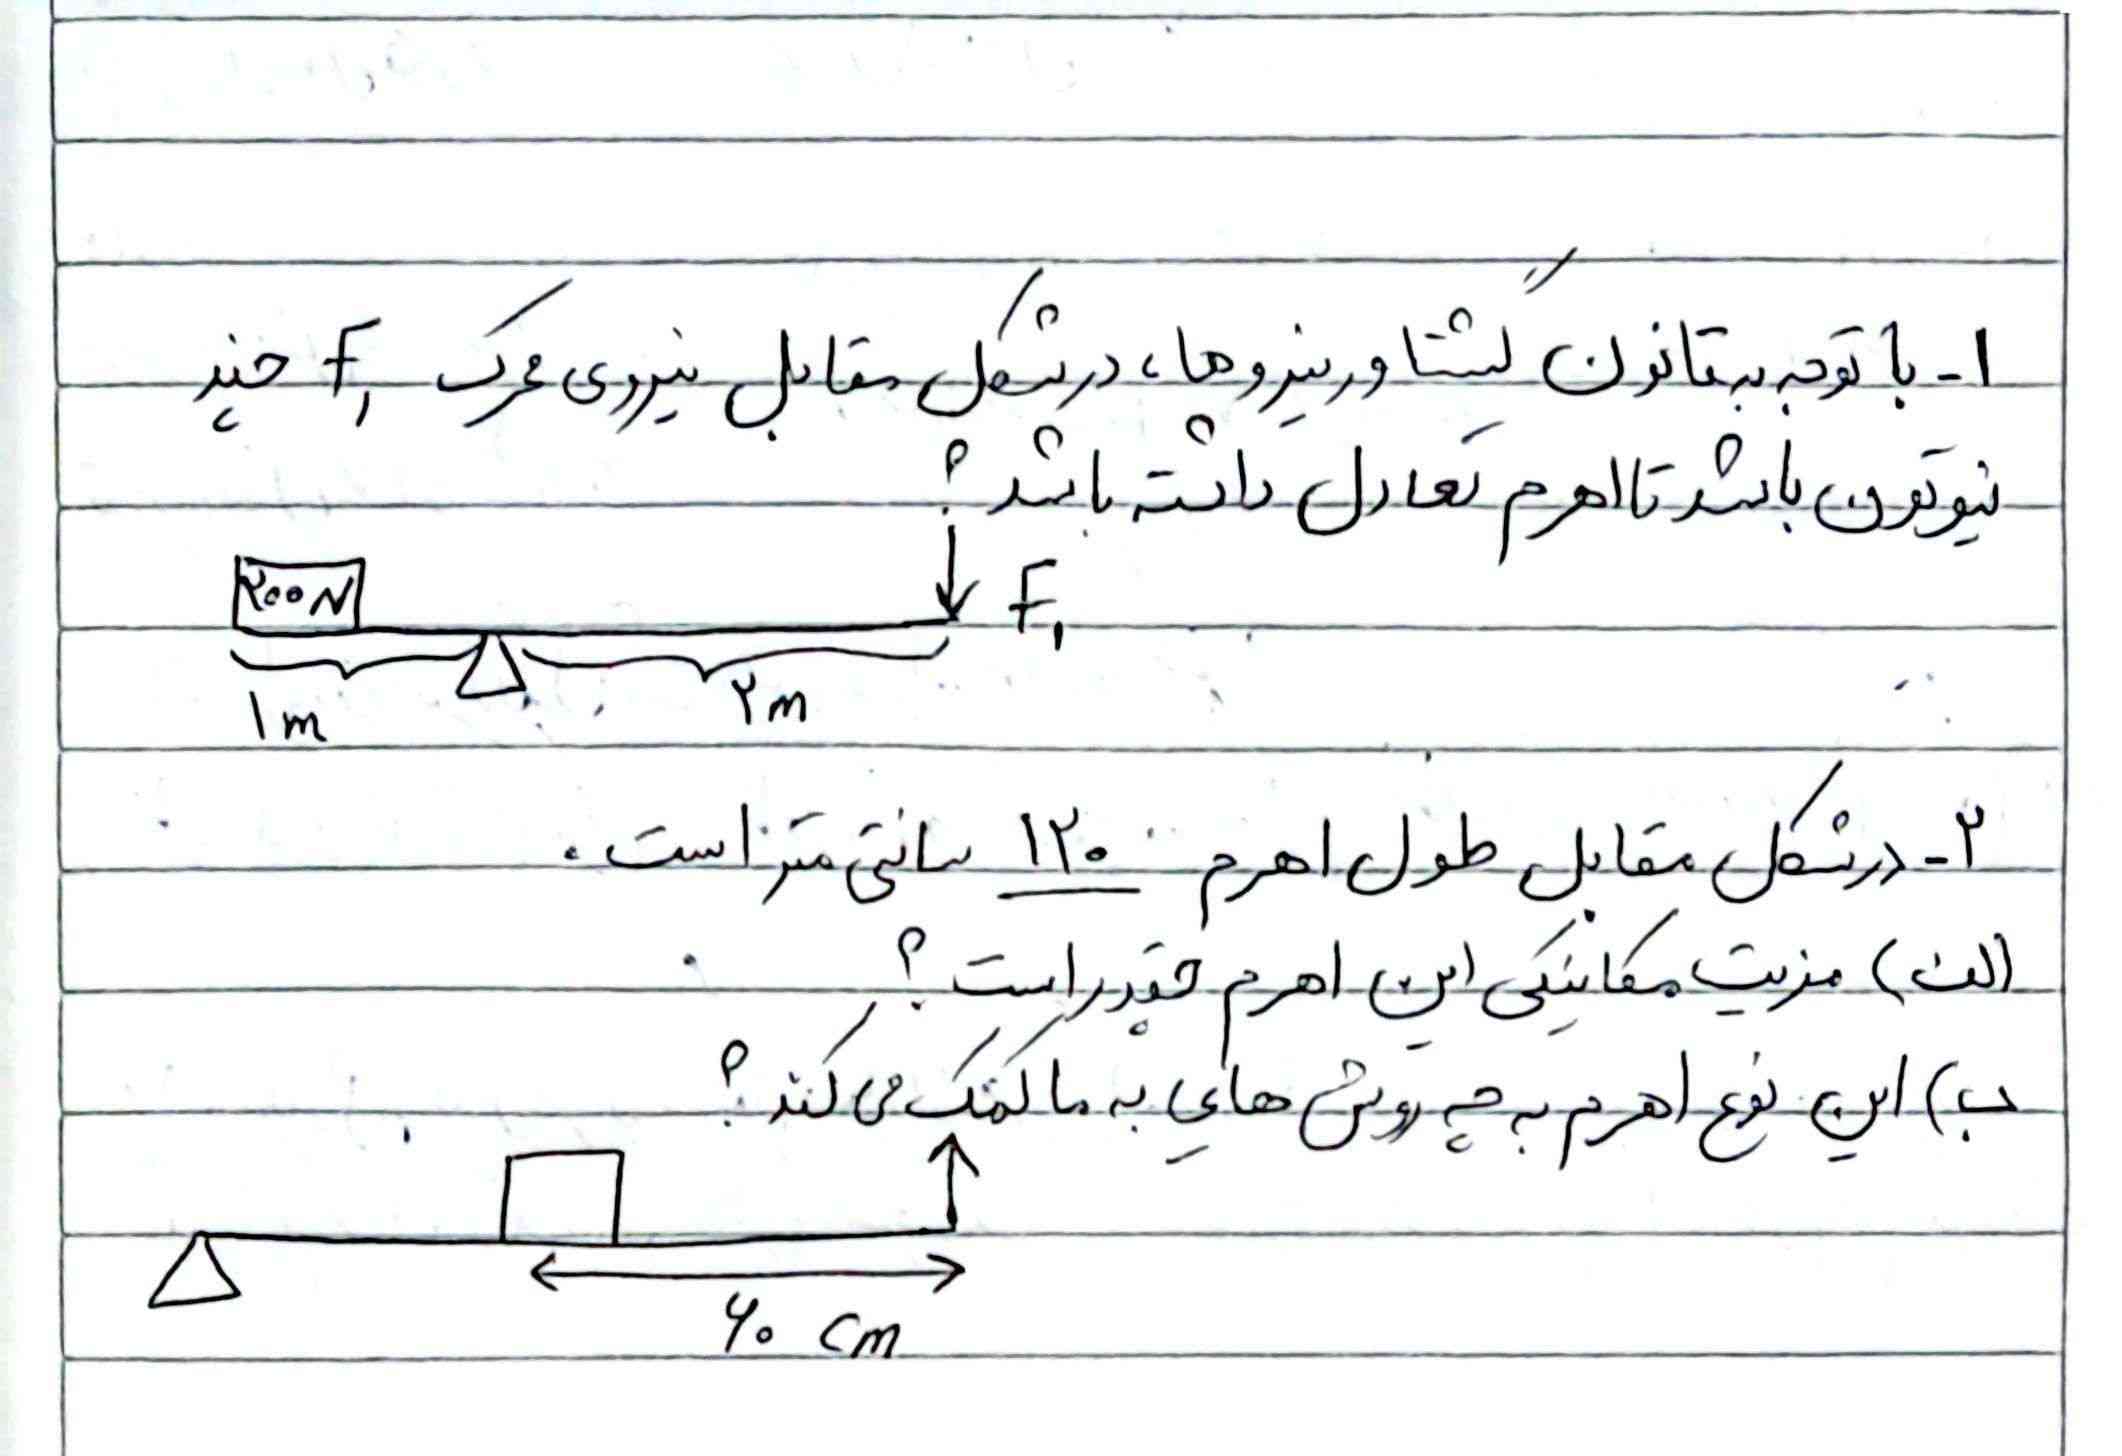 ۱- با توجه به قانون گشتاور نیروها، در شکل مقابل نیروی محرک F₁ چند
نیوتون باشد تا اهرم تعادل داشته باشد؟
۲۰۰N
F₁
۱m
۲m
۲- در شکل مقابل طول اهرم ۱۲۰ سانتی متر است.
الف) مزیت مکانیکی این اهرم چقدر است؟
ب) این نوع اهرم به چه روش هایی به ما کمک می کند؟
۶۰ cm